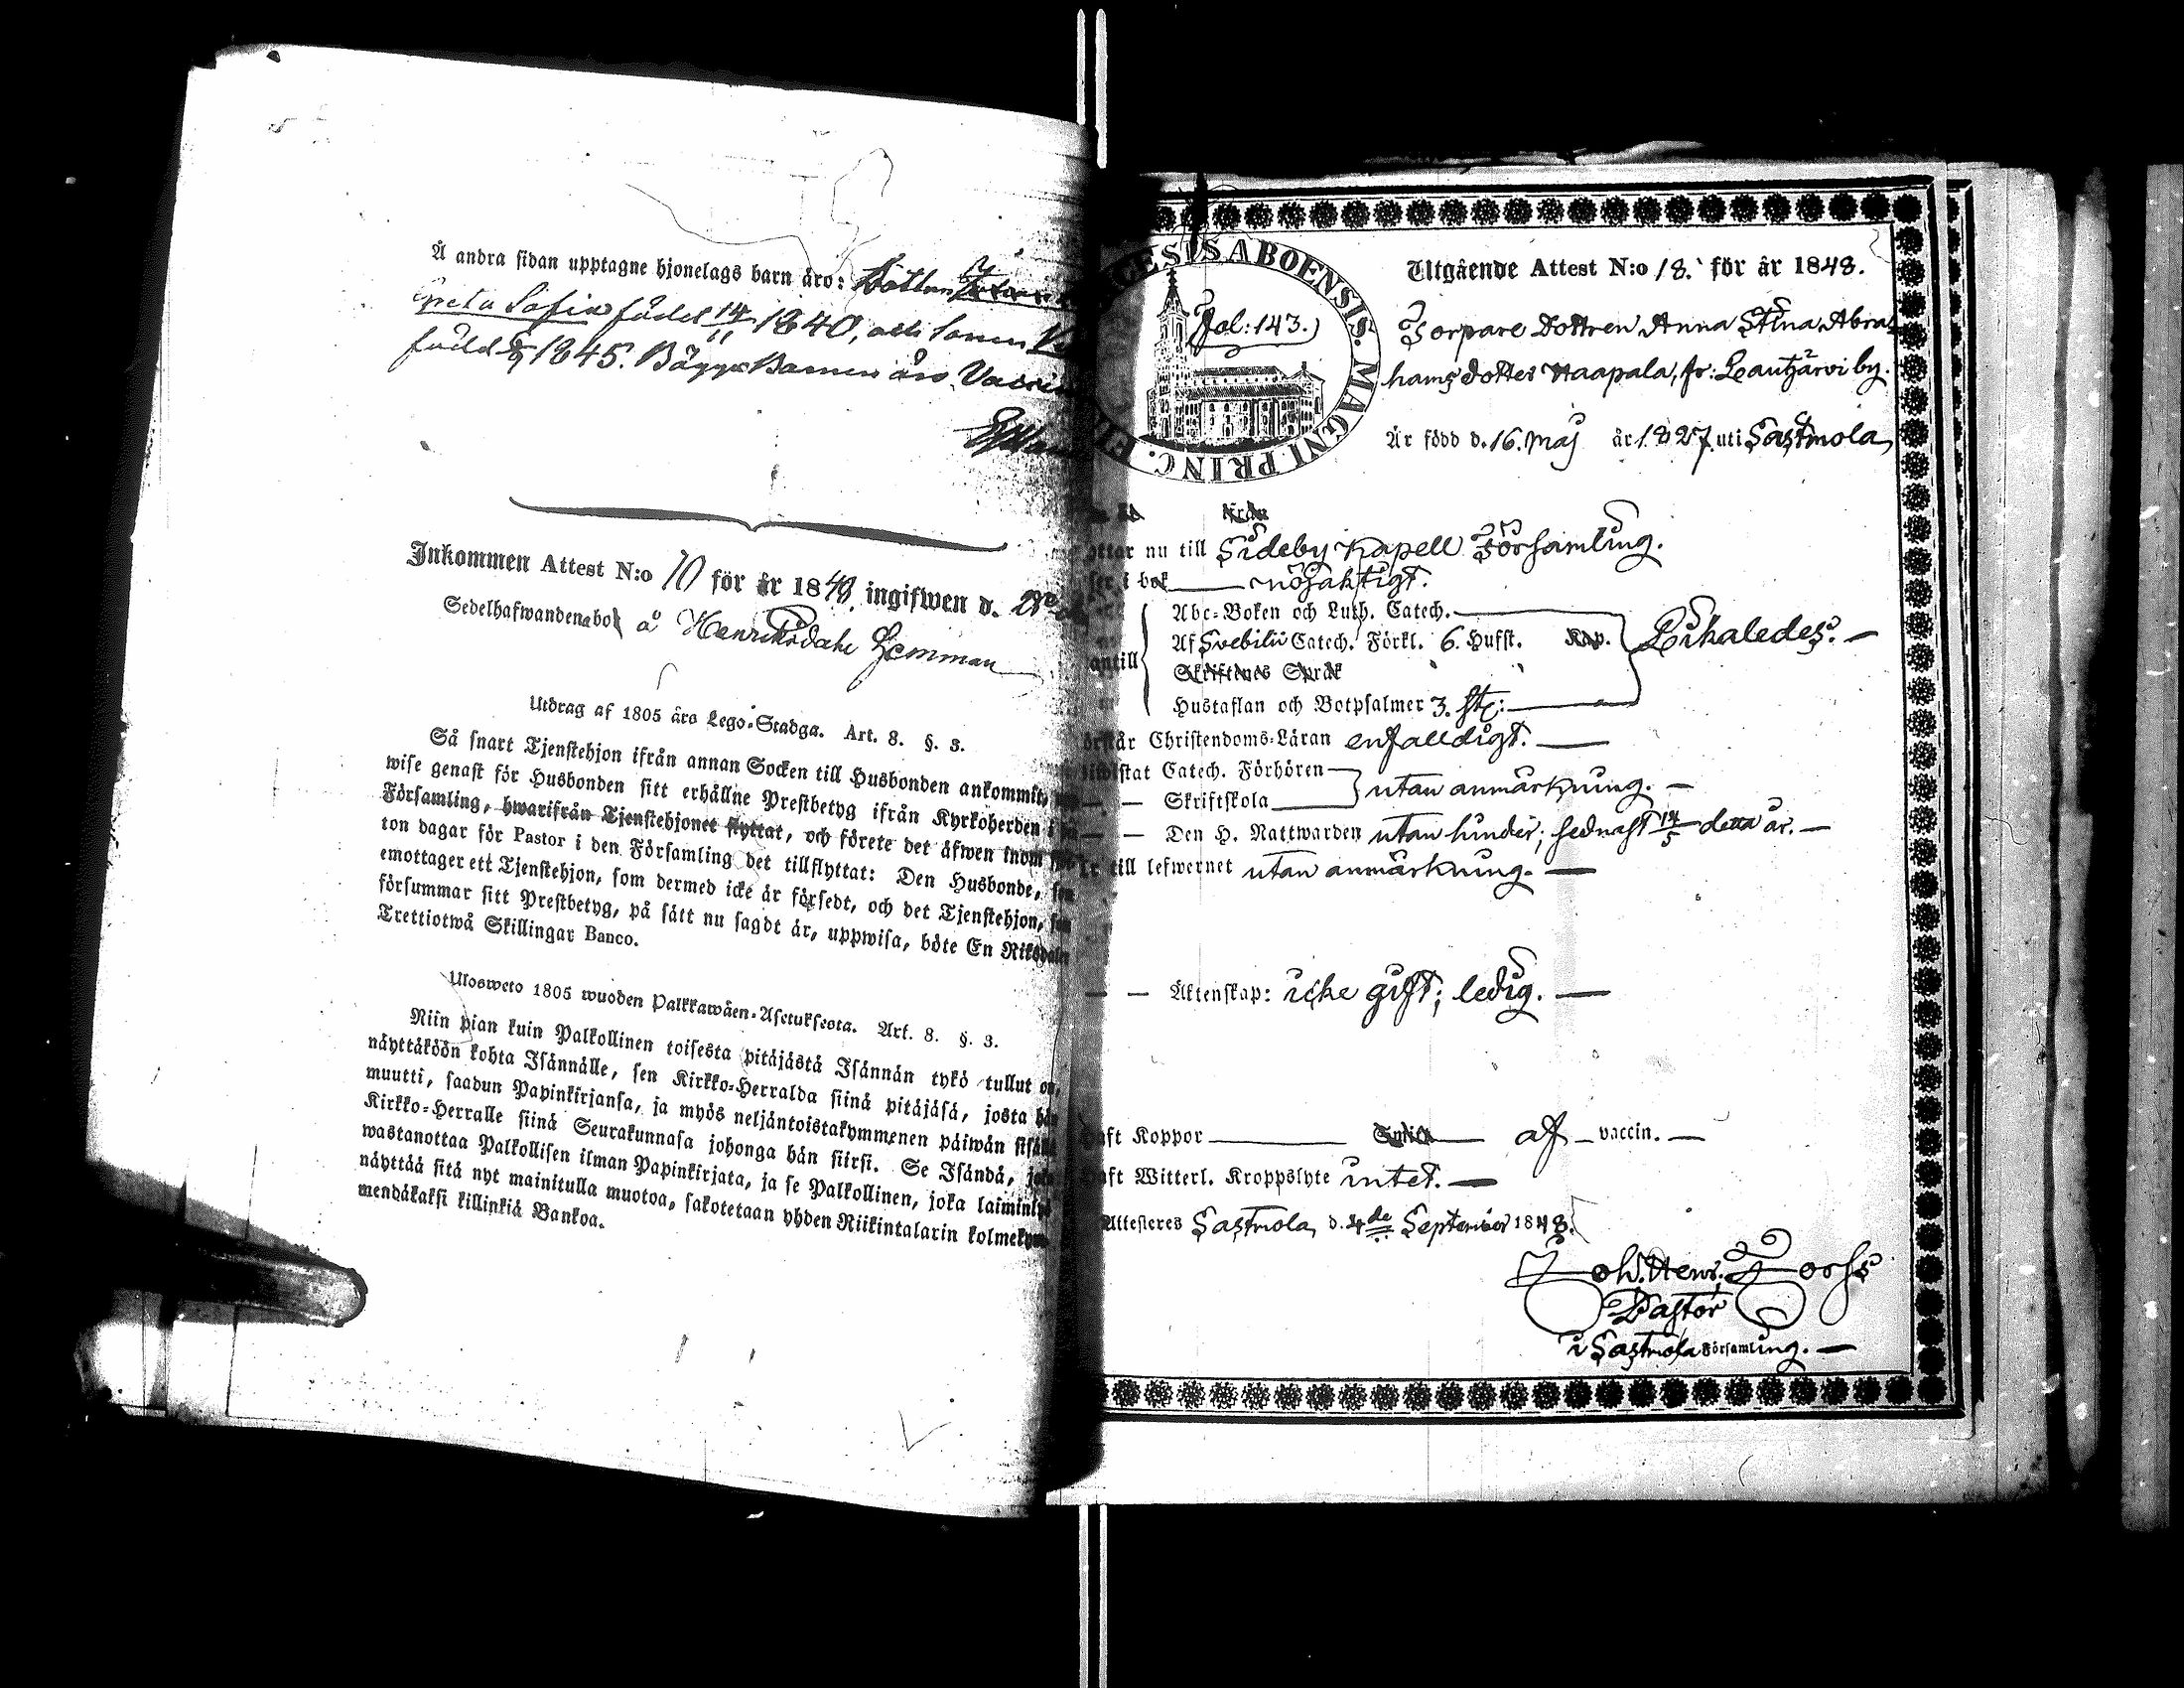 Å andra sidan upptagne hjonelags barn äro: Dottren
Greta Sofia född 14/11 1840, och sonen
född 1845. Bägge Barnen äro Vaccin
Inkommen Attest N:o 10 för år 1848, ingifwen d.
Sedelhafwandenabo å Henriksdahl Hemman
Utdrag af 1805 års Lego-Stadga. Art. 8. §. 3.
Så snart Tjenstehjon ifrån annan Socken till Husbonden ankommit,
wise genast för Husbonden sitt erhållne Prestbetyg ifrån Kyrkoherden i
Församling, hwarifrån Tjenstehjonet flyttat, och förete det äfwen inom
ton dagar för Pastor i den Församling det tillflyttat: Den Husbonde,
emottager ett Tjenstehjon, som dermed icke är försedt, och det Tjenstehjon,
försummar sitt Prestbetyg, på sätt nu sagdt är, uppwisa, böte En Riksdaler
Trettiotwå Skillingar Banco.
Ulosweto 1805 wuoden Palkkawäen-Asetuksesta. Art. 8. §. 3.
Niin pian kuin Palkollinen toisesta pitäjästä Isännän tykö tullut on,
näyttäköön kohta Isännälle, sen Kirkko-Herralda siinä pitäjäsä, josta hän
muutti, saadun Papinkirjansa, ja myös neljäntoistakymmenen päiwän sisällä
Kirkko-Herralle siinä Seurakunnasa johonga hän siirsi. Se Isändä,
wastanottaa Palkollisen ilman Papinkirjata, ja se Palkollinen, joka laiminlyö
näyttää sitä nyt mainitulla muotoa, sakotetaan yhden Riikintalarin kolmekym-
mendäkaksi killinkiä Bankoa.
ABOENSIS. MAGNI PRINC.
Fol: 143.)
Utgående Attest N:o 18. för år 1848.
Torpare Dottren Anna Stina Abra-
hamsdotter Haapala, fr: Lautjärvi by.
Är född d. 16. Maj år 1827. uti Sastmola,
från
nu till Sideby Kapell Församling.
i bok nöjaktigt.
Abc-Boken och Luth. Catech.
Af Svebilii Catech. Förkl. 6. Hufst. Kap. Likaledes.
Skriftenes Språk
Hustaflan och Botpsalmer 3. st:
Christendoms-Läran enfalldigt.
Catech. Förhören
Skriftskola utan anmärkning.
Den H. Nattwarden utan hinder; sednast 14/5 detta år.
till lefwernet utan anmärkning.
Äktenskap: icke gift; ledig.
Haft Koppor af vaccin.
Haft Witterl. Kroppslyte intet.
Attesteres Sastmola, d. 4de September 1848.
Joh. Henr. Forss
Pastor
i Sastmola Församling.